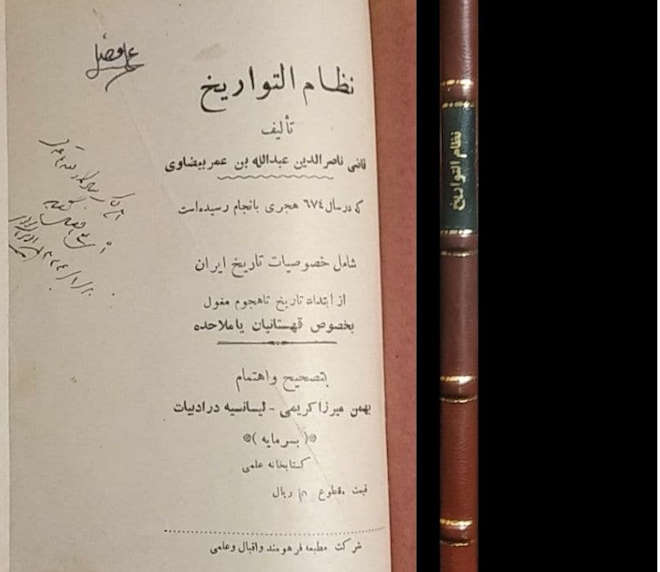 نظام التواریخ
تألیف
قاضی ناصرالدین عبدالله بن عمر بیضاوی
که در سال ٦٧٤ هجری بانجام رسیده است
شامل خصوصیات تاریخ ایران
از ابتداء تاریخ تا هجوم مغول
بخصوص قهستانیان یا ملاحده
بتصحیح و اهتمام
بهمن میرزا کریمی - لیسانسیه در ادبیات
(بسرمایه)
کتابخانه علمی
قیمت مقطوع ریال
شرکت مطبعه فرهومند و اقبال و علمی
نظام التواریخ